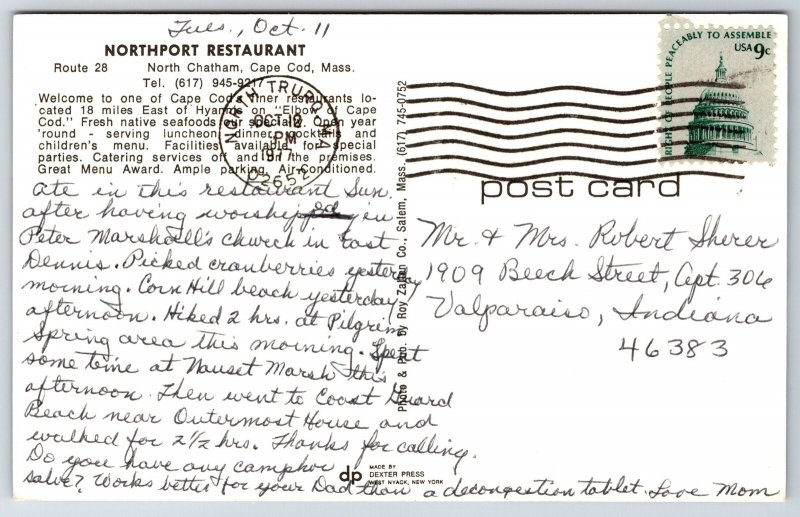 Tues., Oct. 11
NORTHPORT RESTAURANT
Route 28 North Chatham, Cape Cod, Mass.
Tel. (617) 945-9217
Welcome to one of Cape Cod's finer restaurants lo-
cated 18 miles East of Hyannis on "Elbow of Cape
Cod." Fresh native seafoods our specialty. Open year
'round - serving luncheon, dinner, cocktails and
children's menu. Facilities available for special
parties. Catering services off and on the premises.
Great Menu Award. Ample parking. Air-Conditioned.
NORTH TRURO, MA
OCT 12
PM
1977
02652
RIGHT OF PEOPLE PEACEABLY TO ASSEMBLE
USA 9c
post card
Ate in this restaurant Sun.
after having worshipped in
Peter Marshall's church in East
Dennis. Picked cranberries yesterday
morning. Corn Hill beach yesterday
afternoon. Hiked 2 hrs. at Pilgrim
Spring area this morning. Spent
some time at Nauset Marsh this
afternoon. Then went to Coast Guard
Beach near Outermost House and
walked for 2 1/2 hrs. Thanks for calling.
Do you have any camphor
salve? Works better for your Dad than a decongestion tablet. Love Mom
Photo & Pub. by Roy Zalkan Co., Salem, Mass. (617) 745-0752
Mr. & Mrs. Robert Sherer
1909 Beech Street, Apt. 306
Valparaiso, Indiana
46383
dp
MADE BY
DEXTER PRESS
WEST NYACK, NEW YORK